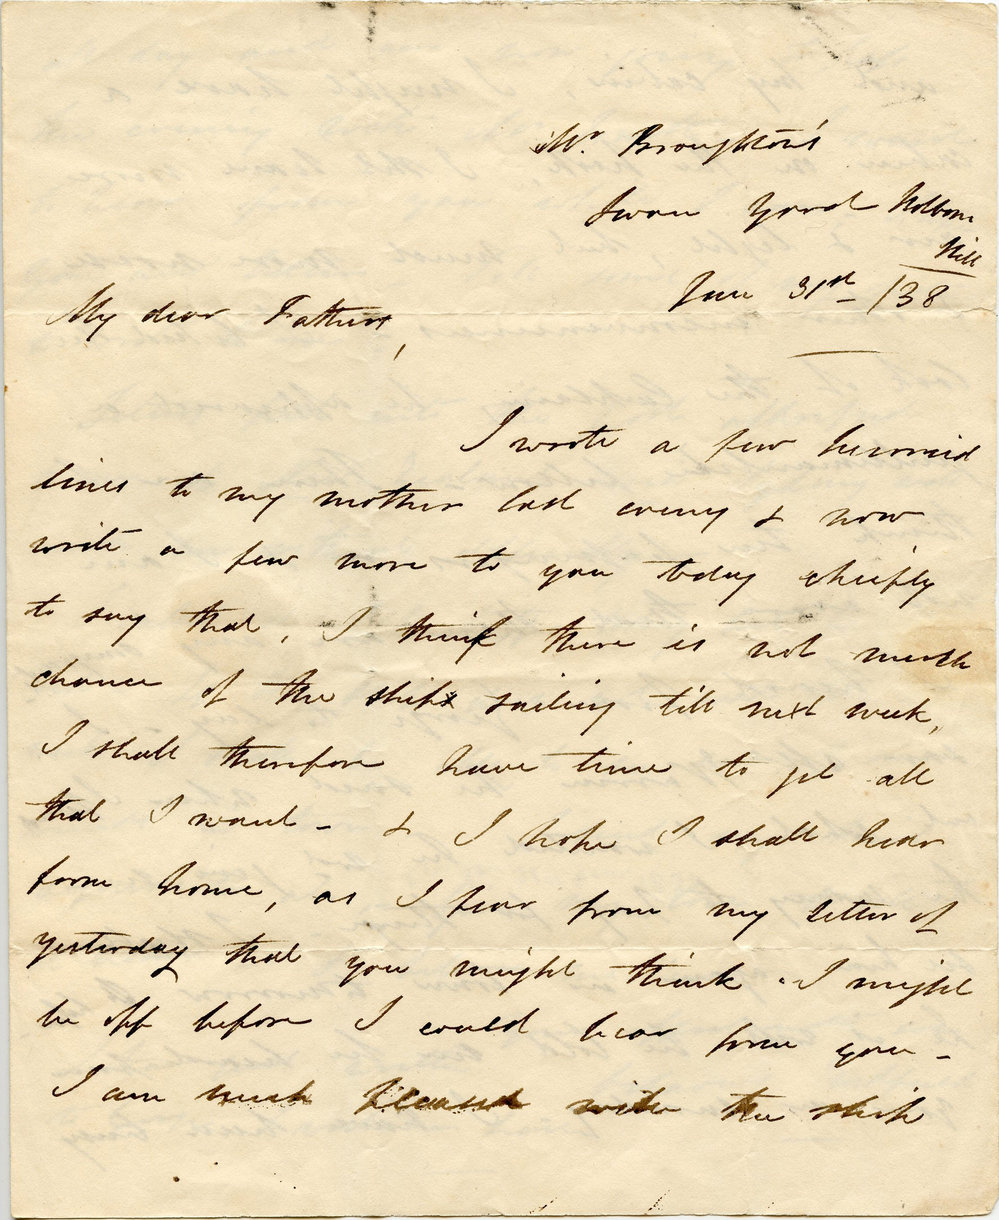 Mr. Broughton's
Swan Yard Holborn
Hill
Jan 31st /38
My dear Father,
I wrote a few hurried
lines to my mother last eveng & now
write a few more to you today chiefly
to say that, I think there is not much
chance of the ship sailing till next week,
I shall therefore have time to get all
that I want - & I hope I shall hear
from home, as I fear from my letter of
yesterday that you might think I might
be off before I could hear from you -
I am much pleased with the ship